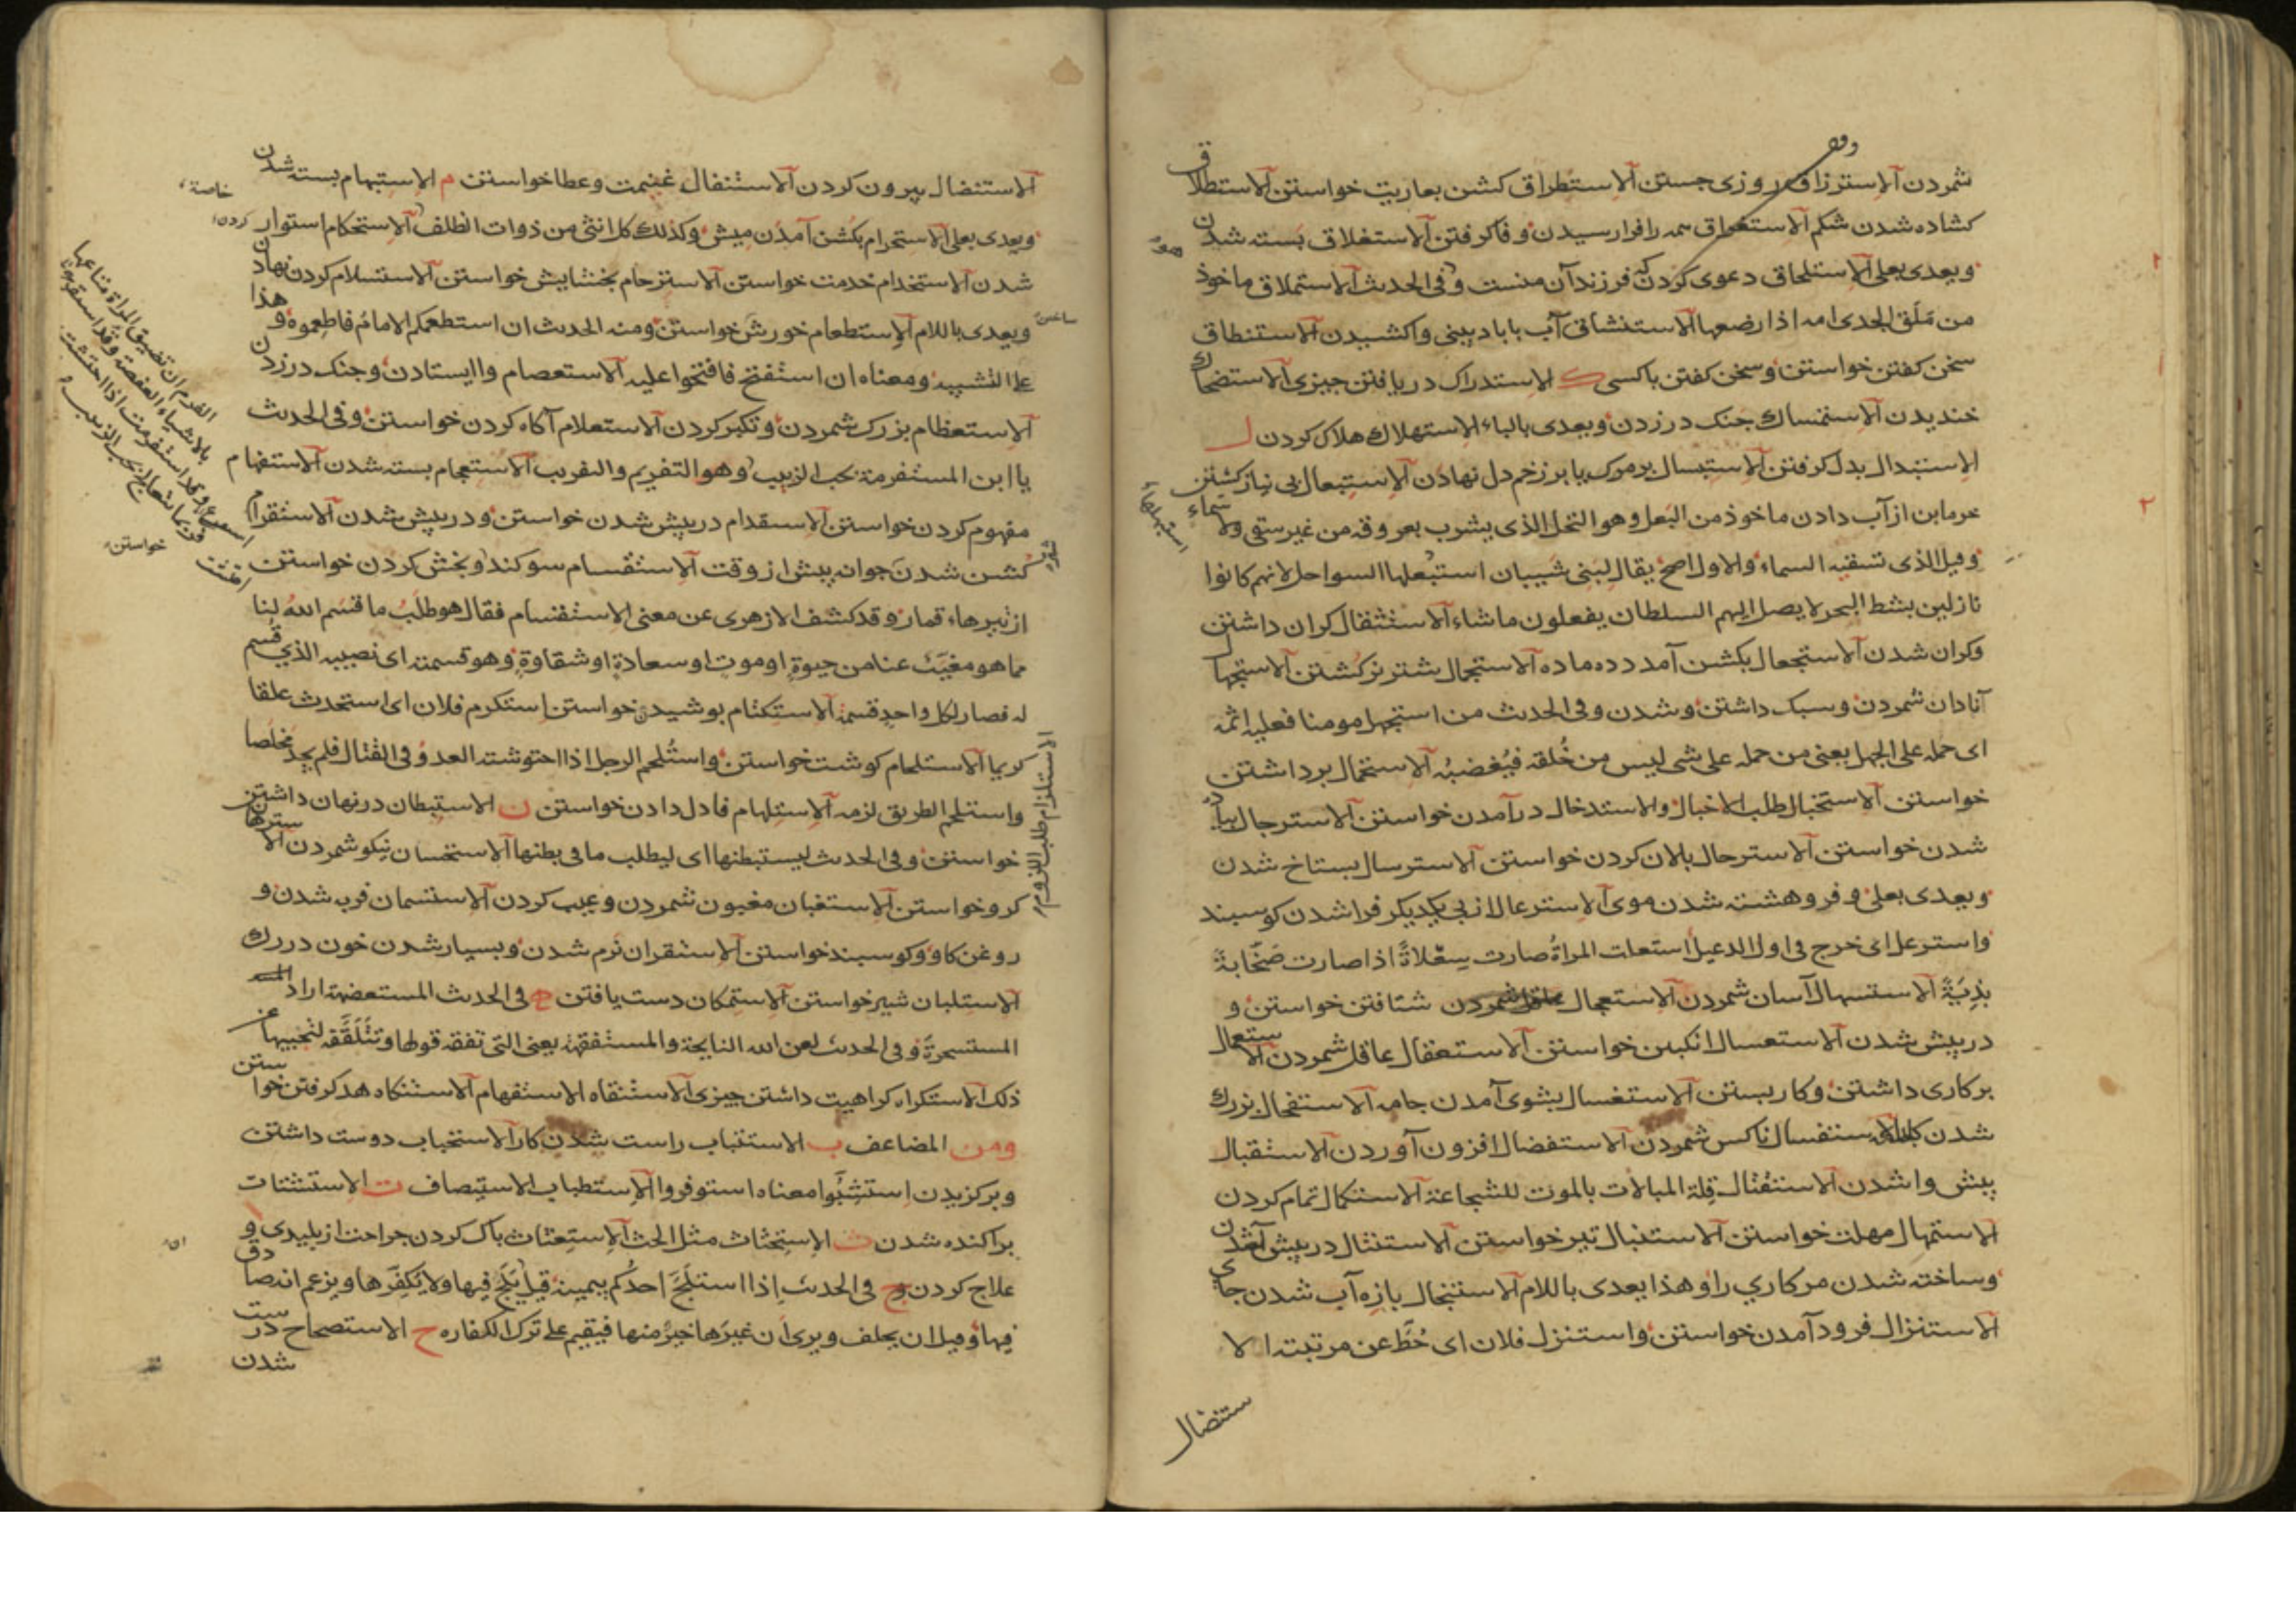 شمردن آلاسترزاق روزی جستن آلاستطراق کشن بعاریت خواستن آلاستطلاق
کشاده شدن شکم آلاستغراق همه را فرا رسیدن و فاکرفتن آلاستغلاق بسته شدن
ویعدی بعلی آلاستلحاق دعوی کردن که فرزند آن منست وفی الحدیث آلاستملاق ماخوذ
من ملق الجدی امه اذا رضعها آلاستنشاق آب یا باد ببینی واکشیدن آلاستنطاق
سخن کفتن خواستن وسخن کفتن باکسی ک الاستدراک دریافتن چیزی آلاستضحاک
خندیدن آلاستمساک چنک درزدن ویعدی بالباء الاستهلاک هلاک کردن ل
الاستبدال بدل کرفتن آلاستبسال بر مرک یا بر زخم دل نهادن آلاستبعال بی نیاز کشتن
خرما بن از آب دادن ماخوذ من البعل وهو النخل الذی یشرب بعروقه من غیر سقی ولا سماء
وقیل الذی تسقیه السماء والاول اصح یقال لبنی شیبان استبعلها السواحل لانهم کانوا
نازلین بشط البحر لا یصل الیهم السلطان یفعلون ما شاء آلاستثقال کران داشتن
وکران شدن آلاستجعال بکشن آمدن ده ماده آلاستجمال شتر نر کشتن آلاستجهال
آنادان شمردن وسبک داشتن وشدن وفی الحدیث من استجهل مومنا فعلیه اثمه
ای حمله علی الجهل یعنی من حمله علی شی لیس من خلقه فیغضبه آلاستحمال برداشتن
خواستن آلاستخبال طلب الاخبال والاستدخال درآمدن خواستن آلاسترجال پیاده
شدن خواستن آلاسترحال پالان کردن خواستن آلاسترسال بستاخ شدن
ویعدی بعلی وفرو هشته شدن موی آلاسترعال از پی یکدیکر فرا شدن کوسبند
واسترعل ای خرج فی اول الرعیل استعلت المراة صارت سعلاة اذا صارت صخابة
بذیة آلاستسهال آسان شمردن آلاستعجال شتافتن خواستن و
درپیش شدن آلاستعسال انکبین خواستن آلاستعقال عاقل شمردن آلاستعمال
بر کاری داشتن وکار بستن آلاستغسال بشوی آمدن جامه آلاستفحال بزرک
شدن کار آلاستفسال ناکس شمردن آلاستفضال افزون آوردن آلاستقبال
پیش وا شدن آلاستقتال قلة المبالات بالموت للشجاعة آلاستکمال تمام کردن
الاستمهال مهلت خواستن آلاستنبال تیر خواستن آلاستنثال درپیش آمدن
وساخته شدن مر کاری را وهذا یعدی باللام آلاستنجال بازه آب شدن جای
الاستنزال فرود آمدن خواستن واستنزل فلان ای حط عن مرتبته الا
ستنضال
آلاستنضال بیرون کردن آلاستنفال غنیمت وعطا خواستن م الاستبهام بسته شدن
ویعدی بعلی آلاستحرام بکشن آمدن میش وکذلک کل انثی من ذوات الظلف آلاستحکام استوار
شدن آلاستخدام خدمت خواستن آلاسترحام بخشایش خواستن آلاستسلام کردن نهادن
ویعدی باللام آلاستطعام خورش خواستن ومنه الحدیث ان استطعمکم الامام فاطعموه وهذا
علی التشبیه ومعناه ان استفتح فافتحوا علیه آلاستعصام وا ایستادن وچنک درزدن
آلاستعظام بزرک شمردن وتکبر کردن آلاستعلام آکاه کردن خواستن وفی الحدیث
یا ابن المستفرمة بحب الزبیب وهو التفریم والتفریب آلاستعجام بسته شدن آلاستفهام
مفهوم کردن خواستن آلاستقدام درپیش شدن خواستن ودرپیش شدن آلاستقرام
کشن شدن جوانه پیش از وقت آلاستقسام سوکند وبخش کردن خواستن
از تیرهاء قمار وقد کشف الازهری عن معنی الاستقسام فقال هو طلب ما قسم الله لنا
مما هو مغیب عنا من حیوة او موت او سعادة او شقاوة وهو قسمته ای نصیبه الذی قسم
له فصار لکل واحد قسمة آلاستکتام بوشیدن خواستن استکرم فلان ای استحدث علقا
کریما آلاستلحام کوشت خواستن واستلحم الرجل اذا احتوشته العدو فی القتال فلم یجد مخلصا
واستلحم الطریق لزمه آلاستلهام فادل دادن خواستن ن الاستبطان درنهان داشتن
خواستن وفی الحدیث لیستبطنها ای لیطلب ما فی بطنها آلاستحسان نیکو شمردن آلاسترهان
کرو خواستن آلاستغبان مغبون شمردن وعیب کردن آلاستسمان فربه شدن و
روغن کاو وکوسبند خواستن آلاستقران نرم شدن وبسیار شدن خون در رک
آلاستلبان شیر خواستن آلاستمکان دست یافتن ه فی الحدیث المستعضهة اراد
المستسحرة وفی الحدیث لعن الله النایحة والمستفقهة یعنی التی تفقه قولها وتتلقفه لتجیبها عن
ذلک آلاستکراه کراهیت داشتن چیزی آلاستنقاه الاستفهام آلاستنکاه هد کرفتن خواستن
ومن المضاعف ب الاستتباب راست شدن کار آلاستحباب دوست داشتن
وبرکزیدن استشبوا معناه استوفروا آلاستطباب الاستیصاف ت الاستشتات
براکنده شدن ث الاستحثاث مثل الحث آلاستعثاث باک کردن جراحت از بلیدی و
علاج کردن وج فی الحدیث اذا استلج احدکم بیمینه قیل یلج فیها ولا یکفرها ویزعم انه صادق
فیها وقیل ان یحلف ویری ان غیرها خیر منها فیقیم علی ترک الکفاره ح الاستصحاح درست
شدن
خاصة
کردن
خواستن
الاستلزام طلب اللزوم